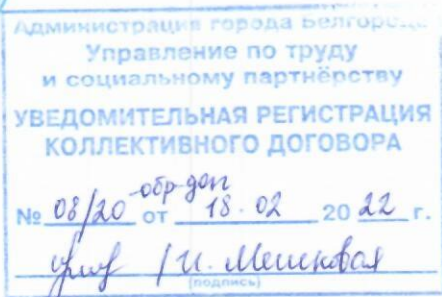 Администрация города Белгорода
Управление по труду
и социальному партнёрству
УВЕДОМИТЕЛЬНАЯ РЕГИСТРАЦИЯ
КОЛЛЕКТИВНОГО ДОГОВОРА
№ 08/20-обр-доп от 18.02 2022 г.
/И. Мешковая
(подпись)